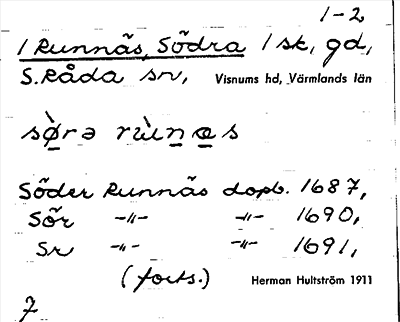 1-2
1 Runnäs, Södra 1 sk, gd,
S. Råda sn, Visnums hd, Värmlands län
sø̀rə rùnes
Söder Runnäs dopb. 1687,
Sör -"- -"- 1690,
Sr -"- -"- 1691,
(forts.) Herman Hultström 1911
7